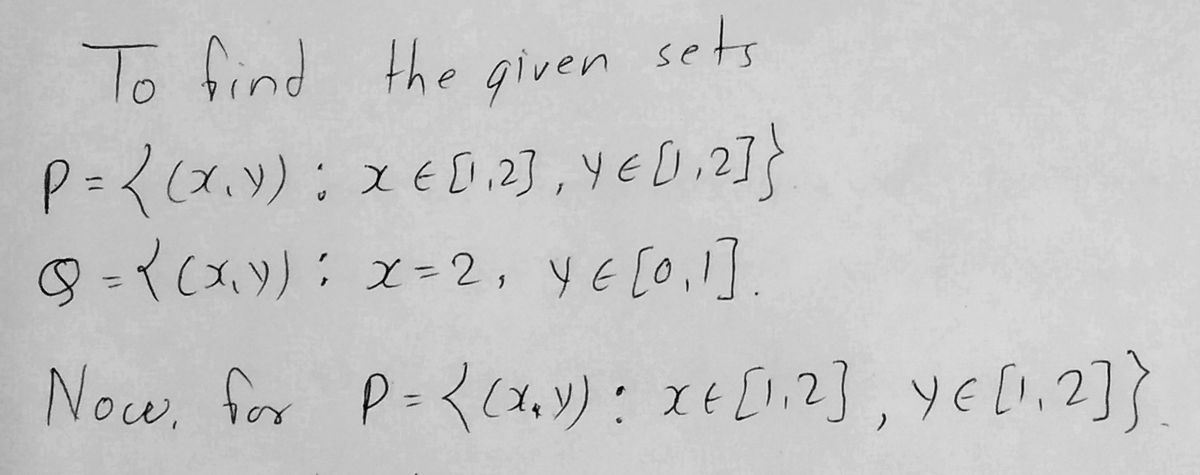 To find the given sets
P = {(x,y) : x ∈ [1,2], y ∈ [1,2]}
Q = {(x,y) : x = 2, y ∈ [0,1].
Now, for P = {(x,y) : x ∈ [1,2], y ∈ [1,2]}.